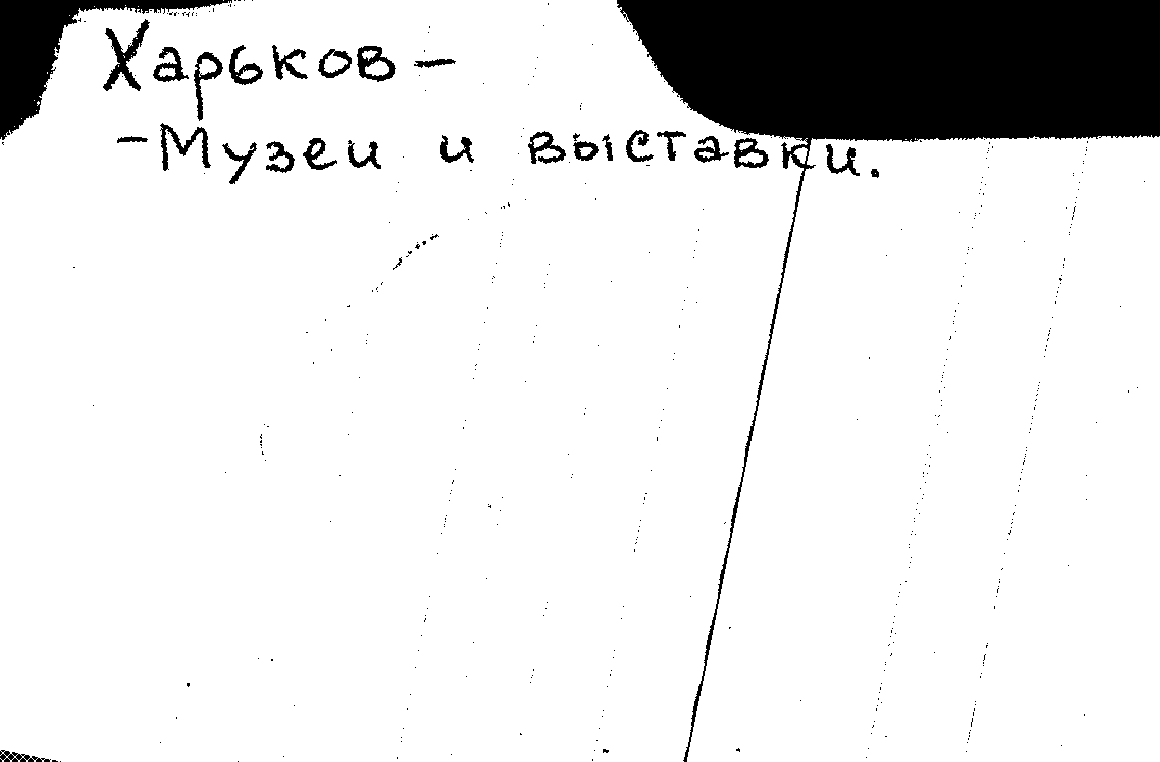 Харьков -
- Музеи и выставки.